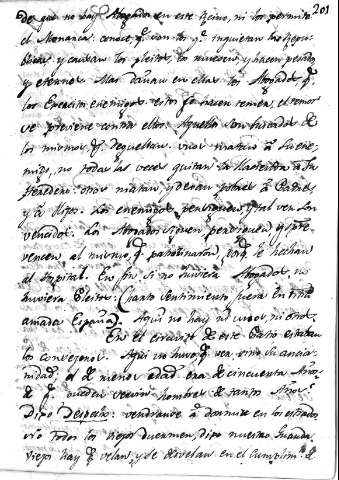 201
de que no hay Abogados en este Reino, ni los permite
el Monarca: conoce q.e quanto q.e inquietan las Repu-
blicas, y causan los pleitos, los nuevos, y hacen pesados,
y eternos. Mas dañan en ellas los Abogados q.e
los Exercitos enemigos: estos se hacen temer, el temor
ve previene contra ellos. Aquellos son buscados de
los mismos q.e deguellan. unos matan à su ene-
migo, no todas las veces quitan la Hacienda à su
Heredero: otros matan, y dexan pobres à Padres,
y à Hijos. Los enemigos persiguen, y tal vez son
vencidos. Los Abogados siguen, persiguen, y siempre
vencen al mismo q.e patrocinaron, pues le hechan
al Hospital. En fin si no huviera Abogados, no
huviera Pleitos: (Quanto sentimiento fuera en tu
amada España). Aqui no hay ni unos, ni otros.
En el circuito de este Patio estaban
los Consejeros. Aqui no huvo q.e ver, sino su ancia-
nidad: el de menos edad era de cincuenta Años
de q.e pueden servir hombres de tantos Años?
Dijo Despejo: vendranse à dormir en los estrados
no todos los viejos duermen, dijo nuestra Guarda,
viejos hay q.e velan, y se desvelan en el cumplim.to de